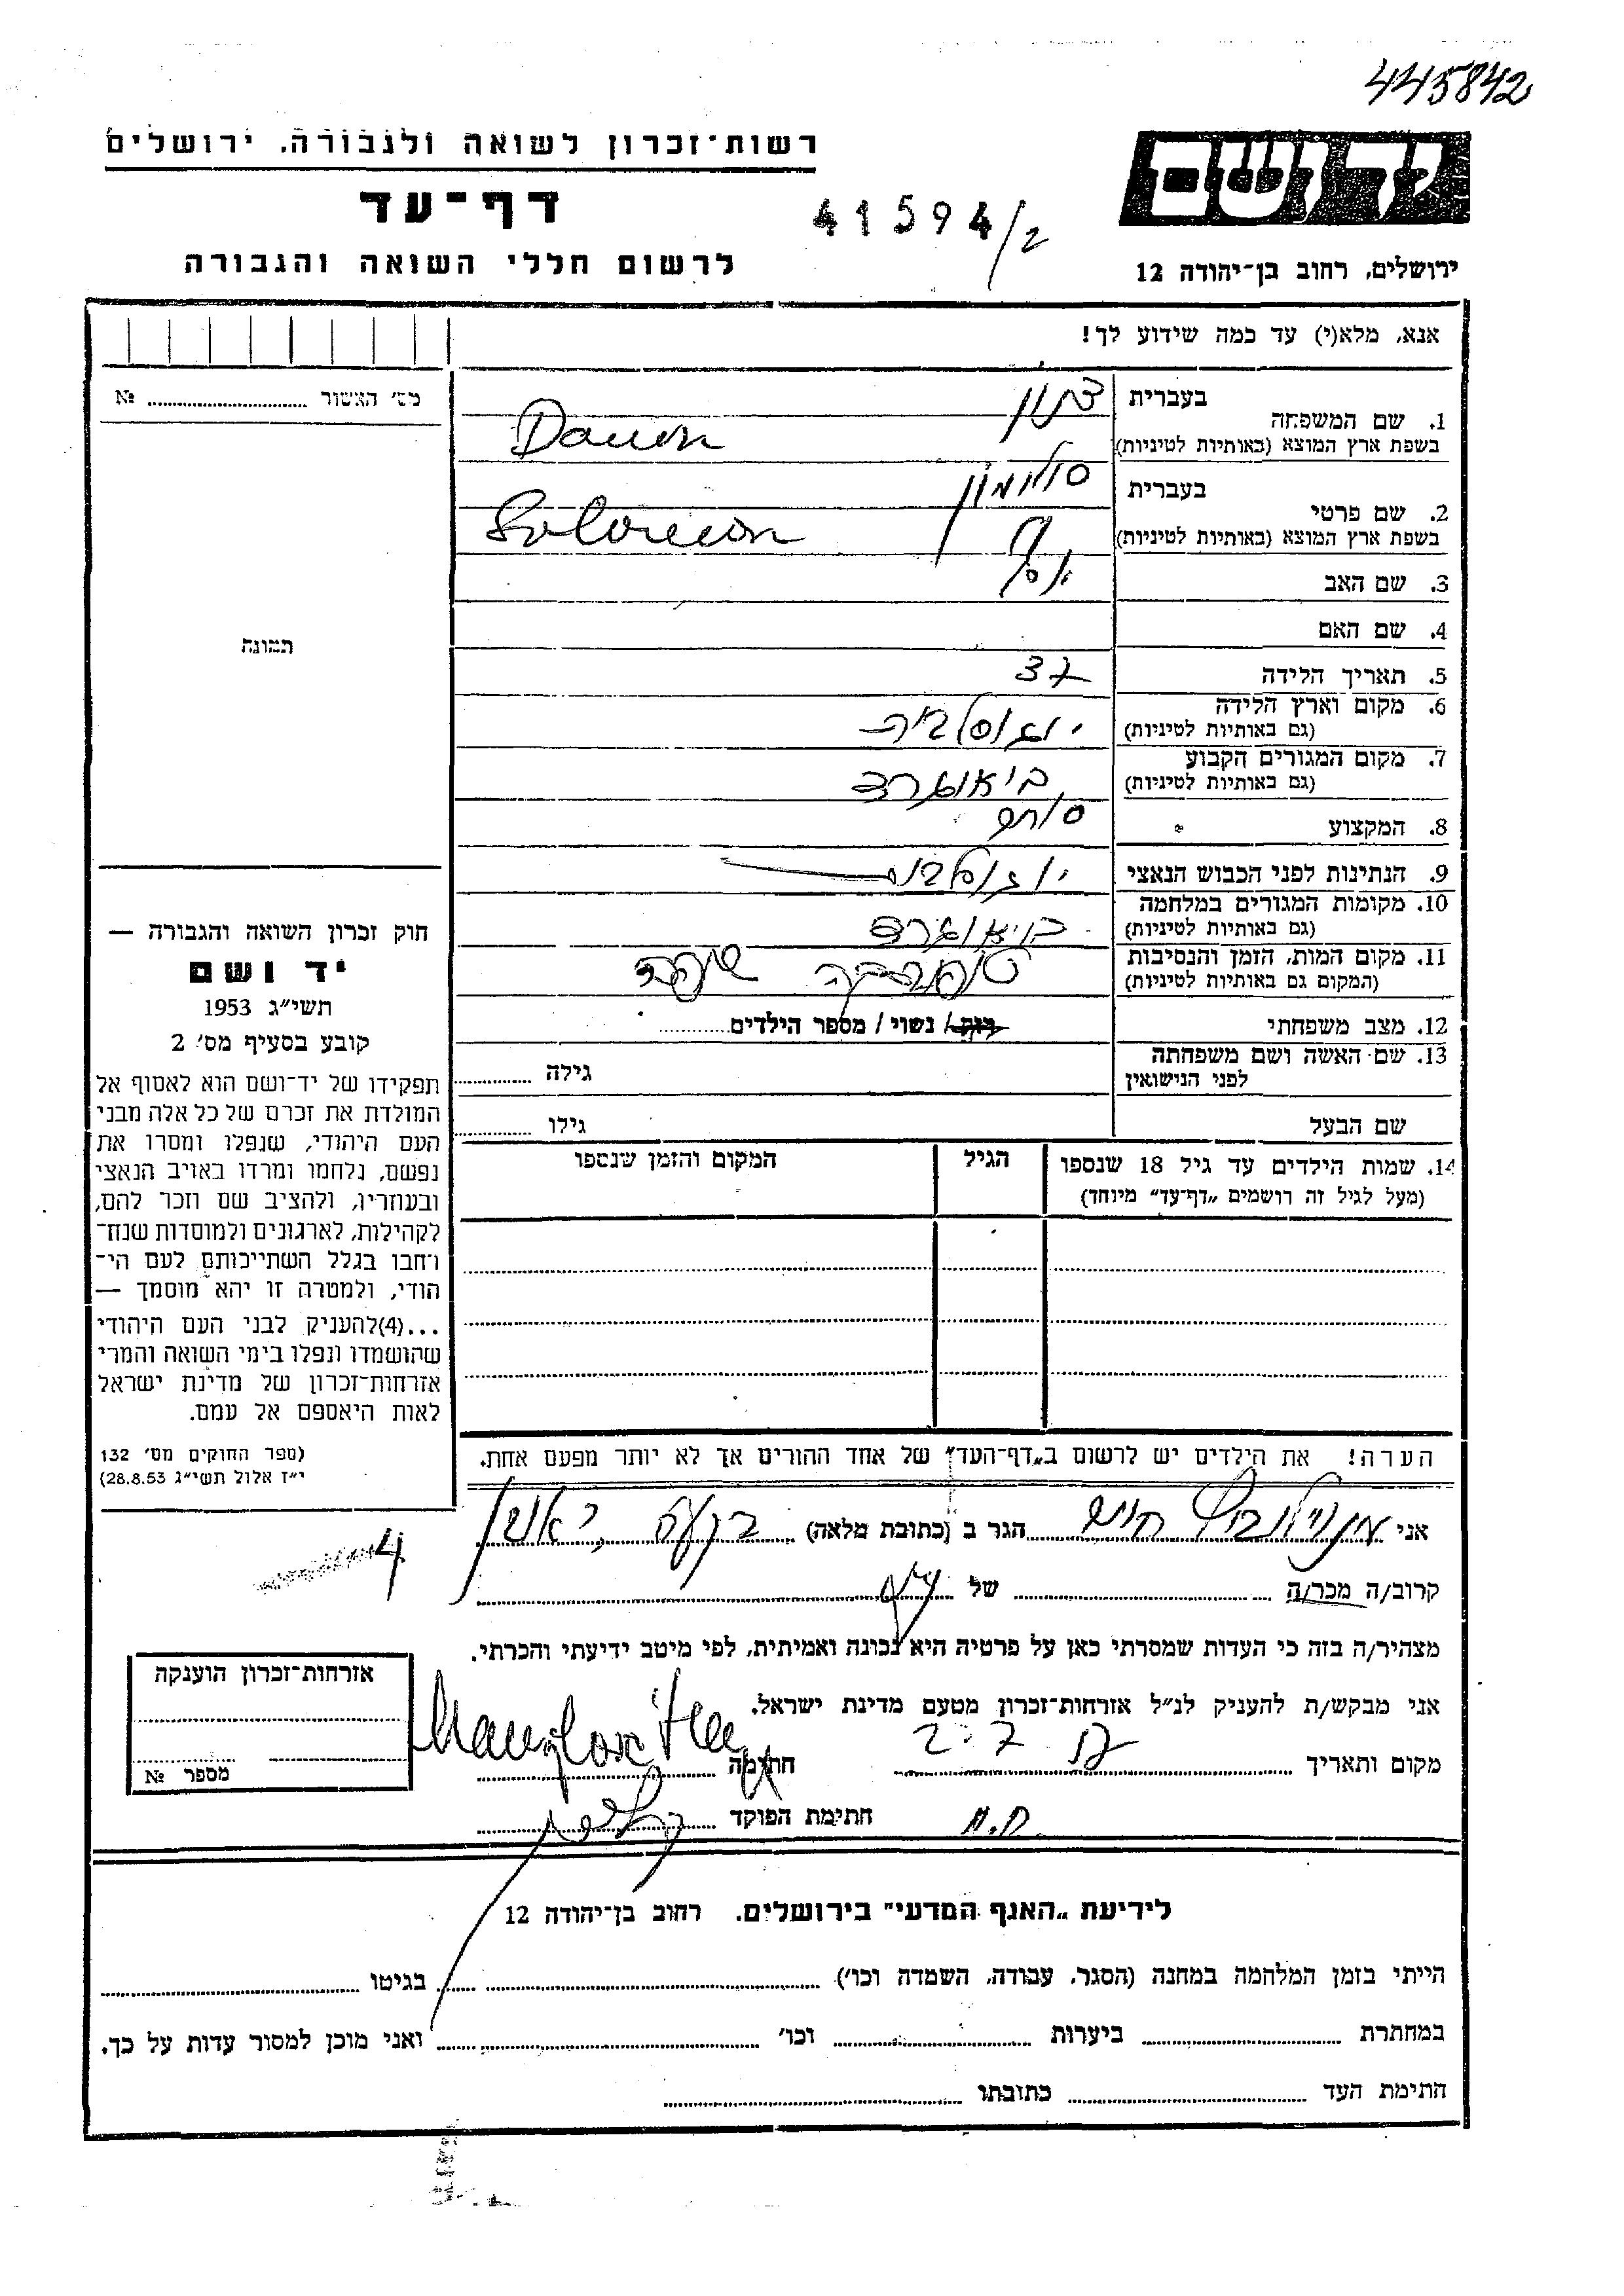 445842
רשות־זכרון לשואה ולגבורה. ירושלים
דף־עד
41594/2
לרשום חללי השואה והגבורה
ירושלים, רחוב בן־יהודה 12
אנא, מלא(י) עד כמה שידוע לך!
מס׳ האשור № 
1. שם המשפחה בעברית דנון
בשפת ארץ המוצא (באותיות לטיניות) Danon
2. שם פרטי בעברית סולומון
בשפת ארץ המוצא (באותיות לטיניות) Solomon
3. שם האב יוסף
4. שם האם
תמונה
5. תאריך הלידה 37
6. מקום וארץ הלידה יוגוסלביה
(גם באותיות לטיניות)
7. מקום המגורים הקבוע
(גם באותיות לטיניות)
8. המקצוע סוחר
9. הנתינות לפני הכבוש הנאצי
10. מקומות המגורים במלחמה
(גם באותיות לטיניות)
11. מקום המות, הזמן והנסיבות
(המקום גם באותיות לטיניות)
12. מצב משפחתי רווק / נשוי / מספר הילדים
13. שם האשה ושם משפחתה
לפני הנישואין גילה
שם הבעל גילו
14. שמות הילדים עד גיל 18 שנספו הגיל המקום והזמן שנספו
(מעל לגיל זה רושמים „דף־עד” מיוחד)
חוק זכרון השואה והגבורה —
יד ושם
תשי״ג 1953
קובע בסעיף מס׳ 2
תפקידו של יד־ושם הוא לאסוף אל
המולדת את זכרם של כל אלה מבני
העם היהודי, שנפלו ומסרו את
נפשם, נלחמו ומרדו באויב הנאצי
ובעוזריו, ולהציב שם וזכר להם,
לקהילות, לארגונים ולמוסדות שנח־
רחבו בגלל השתייכותם לעם הי־
הודי, ולמטרה זו יהא מוסמך —
...(4)להעניק לבני העם היהודי
שהושמדו ונפלו בימי השואה והמרי
אזרחות־זכרון של מדינת ישראל
לאות היאספם אל עמם.
(ספר החוקים מס׳ 132
י״ז אלול תשי״ג 28.8.53)
הערה! את הילדים יש לרשום ב„דף־העד” של אחד ההורים אך לא יותר מפעם אחת.
אני חיים הגר ב (כתובת מלאה)
4
קרוב/ה מכר/ה של
מצהיר/ה בזה כי העדות שמסרתי כאן על פרטיה היא נכונה ואמיתית, לפי מיטב ידיעתי והכרתי.
אני מבקש/ת להעניק לנ״ל אזרחות־זכרון מטעם מדינת ישראל.
מקום ותאריך חתימה
חתימת הפוקד
אזרחות־זכרון הוענקה
מספר №
לידיעת „האגף המדעי” בירושלים. רחוב בן־יהודה 12
הייתי בזמן המלחמה במחנה (הסגר, עבודה, השמדה וכו׳) בגיטו
במחתרת ביערות וכו׳ ואני מוכן למסור עדות על כך.
חתימת העד כתובתו